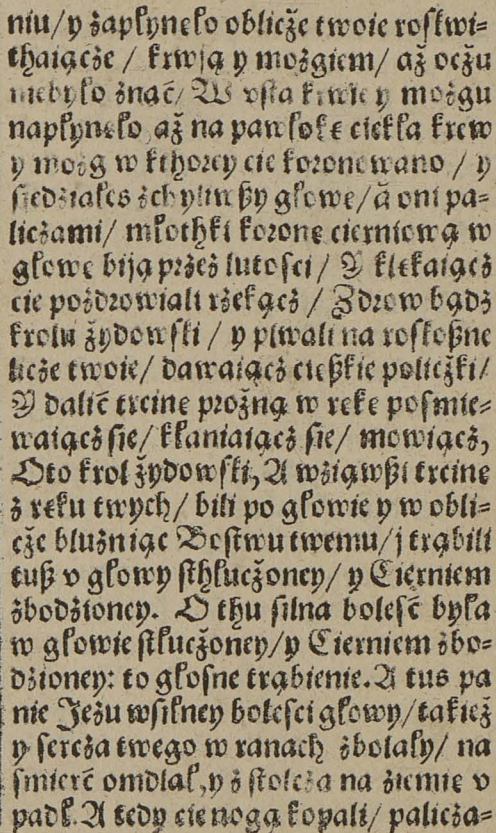 niu/ y zapłynęło oblicże twoie roskwi⸗
thaiącże / krwią y mozgiem/ aż ocżu
niebyło znać/ W vsta krwie y mozgu
napłynęło aż na pawłokę ciekła krew
y mozg w kthorey cie koronowano / y
siedziałeś zchyliwßy głowę/ á oni pa⸗
liczami/ młothki koronę cierniową w
głowę biją przez lutości/ Y klękaiącz
cie pozdrowiali rżekącz / Zdrow bądz
krolu żydowski / y plwali na roskoßne
licże twoie/ dawaiącz cießkie policżki/
Y dalić trcinę prożną w rękę pośmie⸗
waiącz się/ kłaniaiącz się/ mowiącz,
Oto krol żydowski, A wziąwßi trcinę
z ręku twych/ bili po głowie y w obli⸗
cże bluźniąc Bostwu twemu/ j trąbili
tuß v głowy sthłucżoney/ y Cierniem
zbodzioney. O thu silna boleść była
w głowie stłucżoney/ y Cierniem zbo⸗
dzioney: to głosne trąbienie. A tus pa
nie Jezu wsilney bolesci głowy/ takież
y sercza twego w ranach zbolały/ na
śmierć omdlał, y z stolcza na ziemię v
padł. A tedy cię nogą kopali/ palicza⸗